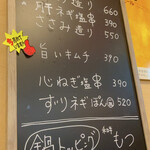 造り 660
肝ネギ塩串 390
ささみ造り 550
旨いキムチ 390
心ねぎ塩串 390
ずりネギぽん酢 520
鍋トッピング
もつ